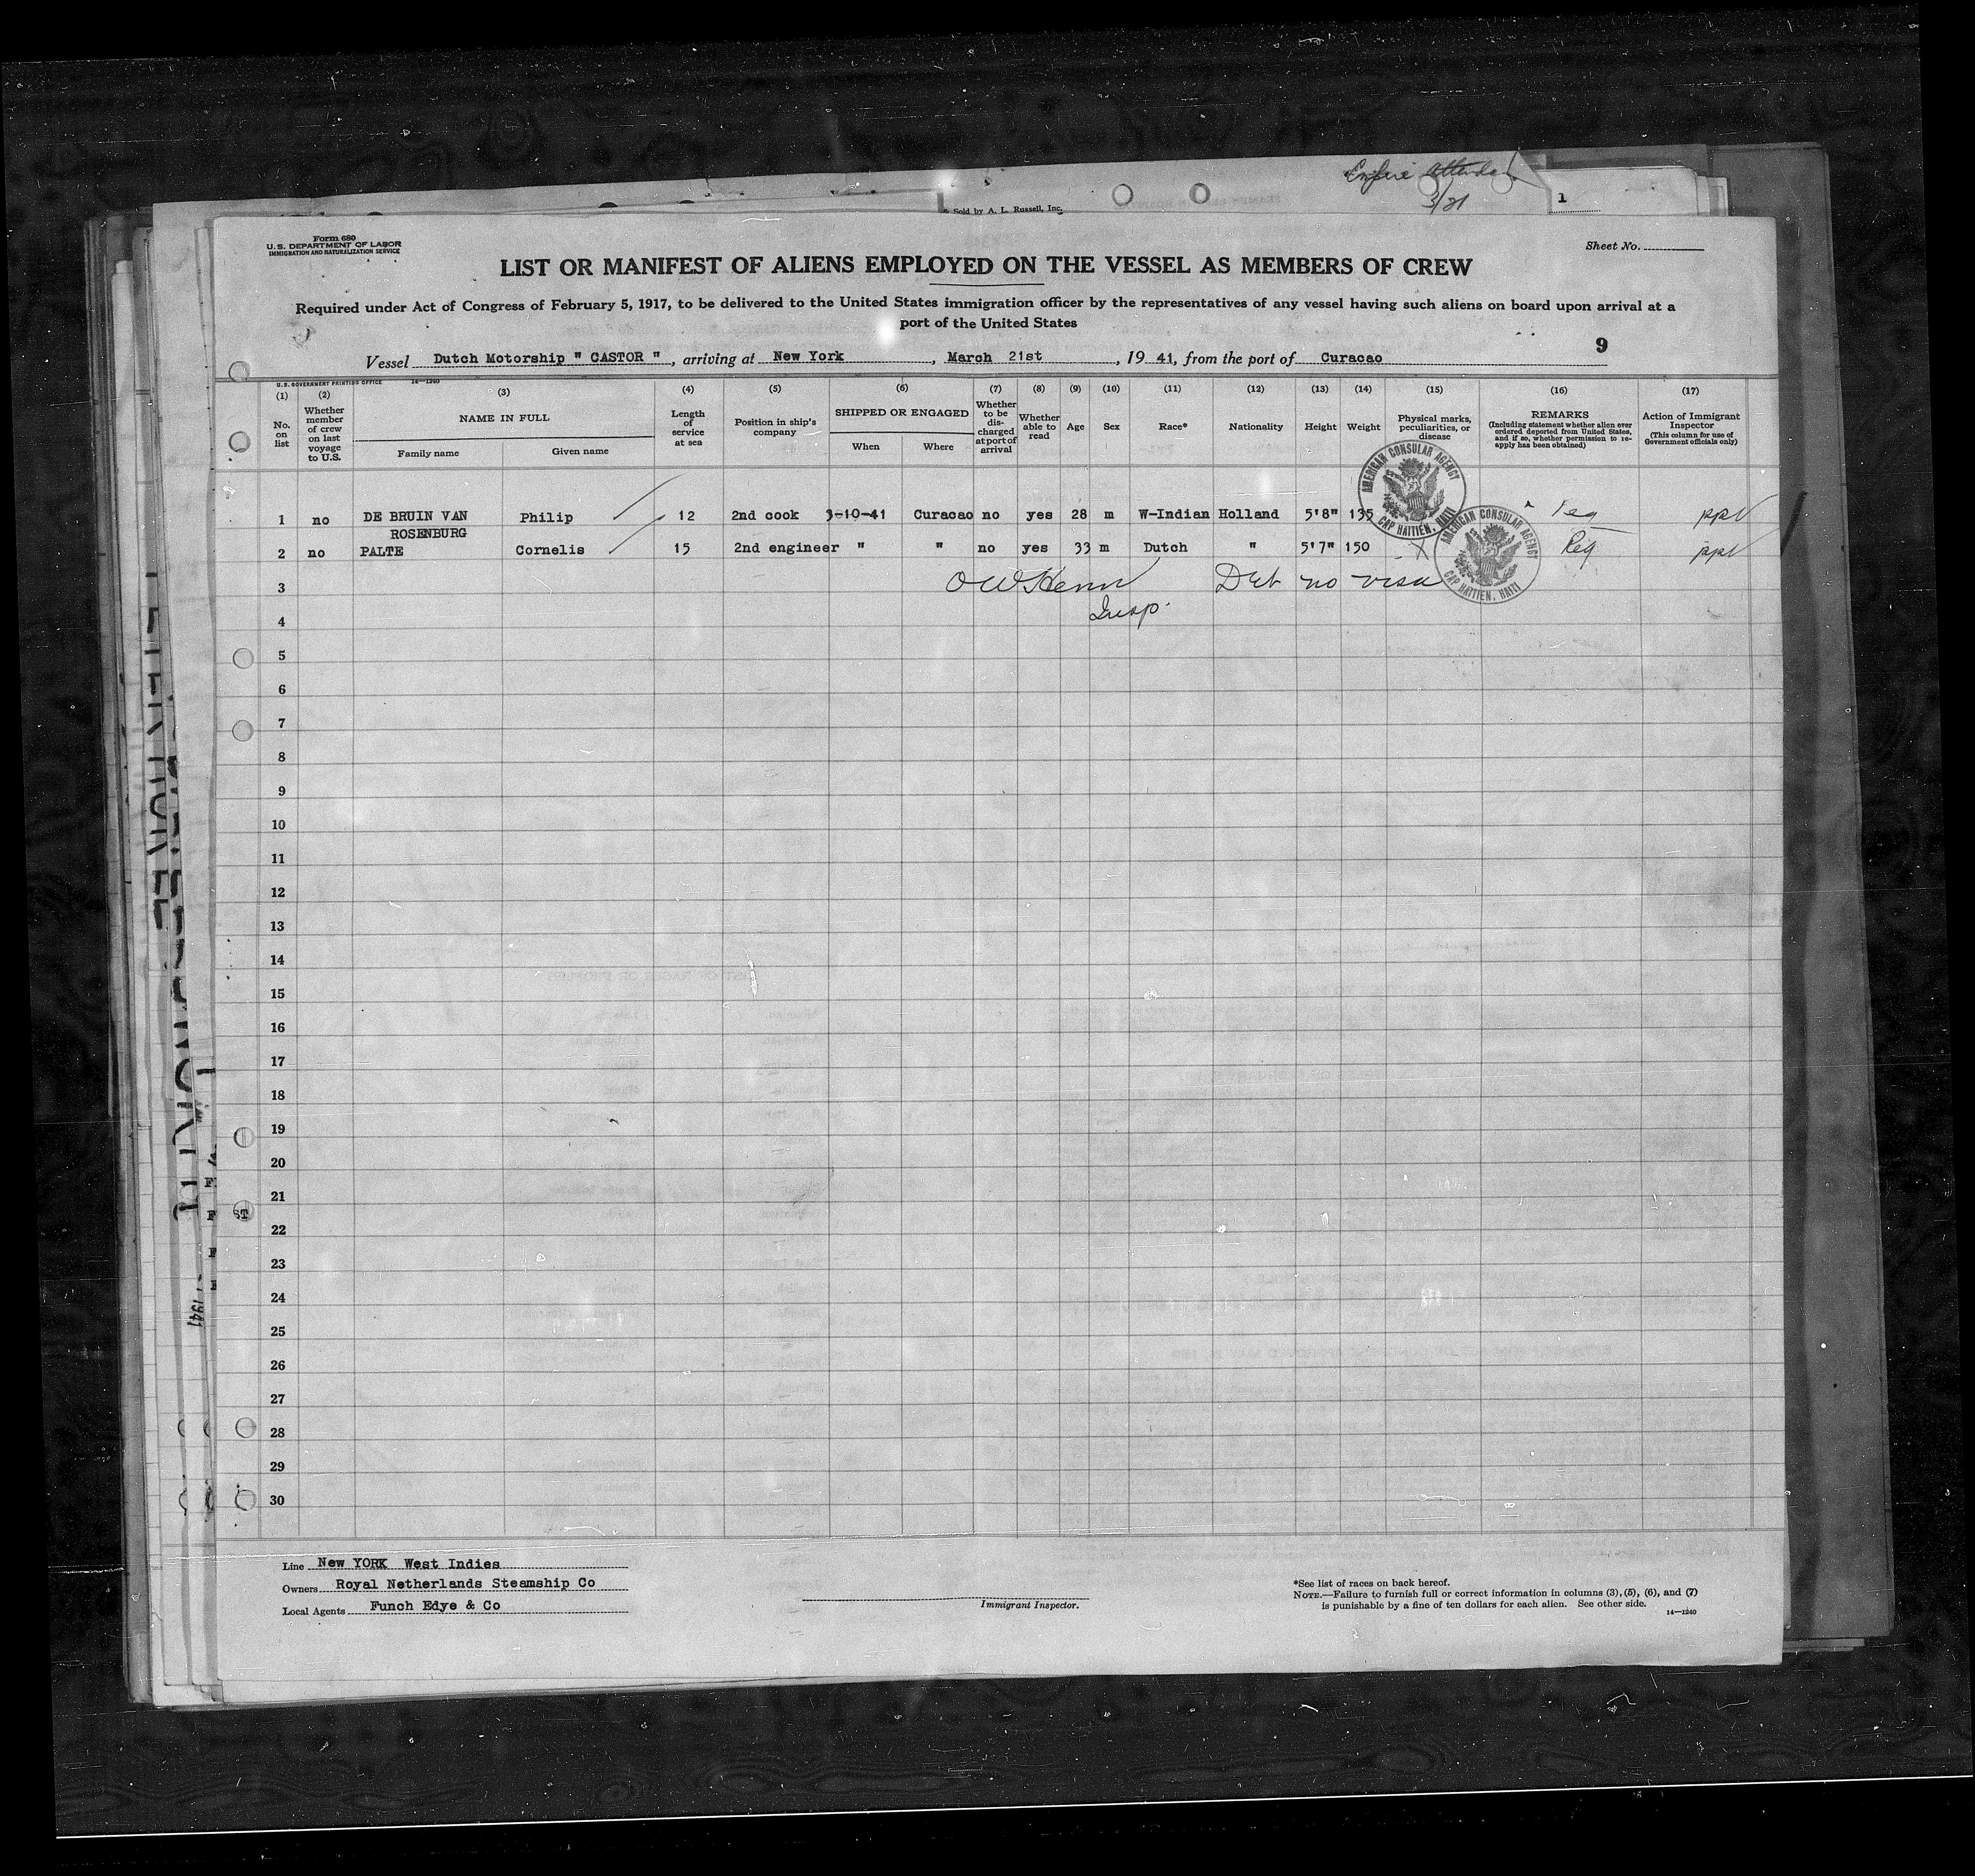 3/21
Sold by A. L. Russell, Inc.
1
Form 680
U.S. DEPARTMENT OF LABOR
IMMIGRATION AND NATURALIZATION SERVICE
Sheet No.
LIST OR MANIFEST OF ALIENS EMPLOYED ON THE VESSEL AS MEMBERS OF CREW
Required under Act of Congress of February 5, 1917, to be delivered to the United States immigration officer by the representatives of any vessel having such aliens on board upon arrival at a
port of the United States
9
Vessel Dutch Motorship " CASTOR ", arriving at New York, March 21st, 19 41, from the port of Curacao
U.S. GOVERNMENT PRINTING OFFICE 14—1240
(1) (2) (3) (4) (5) (6) (7) (8) (9) (10) (11) (12) (13) (14) (15) (16) (17)
No. on list
Whether member of crew on last voyage to U.S.
NAME IN FULL
Family name
Given name
Length of service at sea
Position in ship's company
SHIPPED OR ENGAGED
When
Where
Whether to be discharged at port of arrival
Whether able to read
Age
Sex
Race*
Nationality
Height
Weight
Physical marks, peculiarities, or disease
REMARKS
(Including statement whether alien ever ordered deported from United States, and if so, whether permission to reapply has been obtained)
Action of Immigrant Inspector
(This column for use of Government officials only)
AMERICAN CONSULAR AGENCY
CAP HAITIEN, HAITI
1 no DE BRUIN VAN ROSENBURG Philip 12 2nd cook 3-10-41 Curacao no yes 28 m W-Indian Holland 5'8" 135
2 no PALTE Cornelis 15 2nd engineer " " no yes 33 m Dutch " 5'7" 150 X Reg
AMERICAN CONSULAR AGENCY
CAP HAITIEN, HAITI
3 no visa
Insp.
4
5
6
7
8
9
10
11
12
13
14
15
16
17
18
19
20
21
ST
22
23
24
25
26
27
28
29
30
1941
Line New YORK West Indies
Owners Royal Netherlands Steamship Co
Local Agents Funch Edye & Co
Immigrant Inspector.
*See list of races on back hereof.
NOTE.—Failure to furnish full or correct information in columns (3), (5), (6), and (7)
is punishable by a fine of ten dollars for each alien. See other side.
14—1240